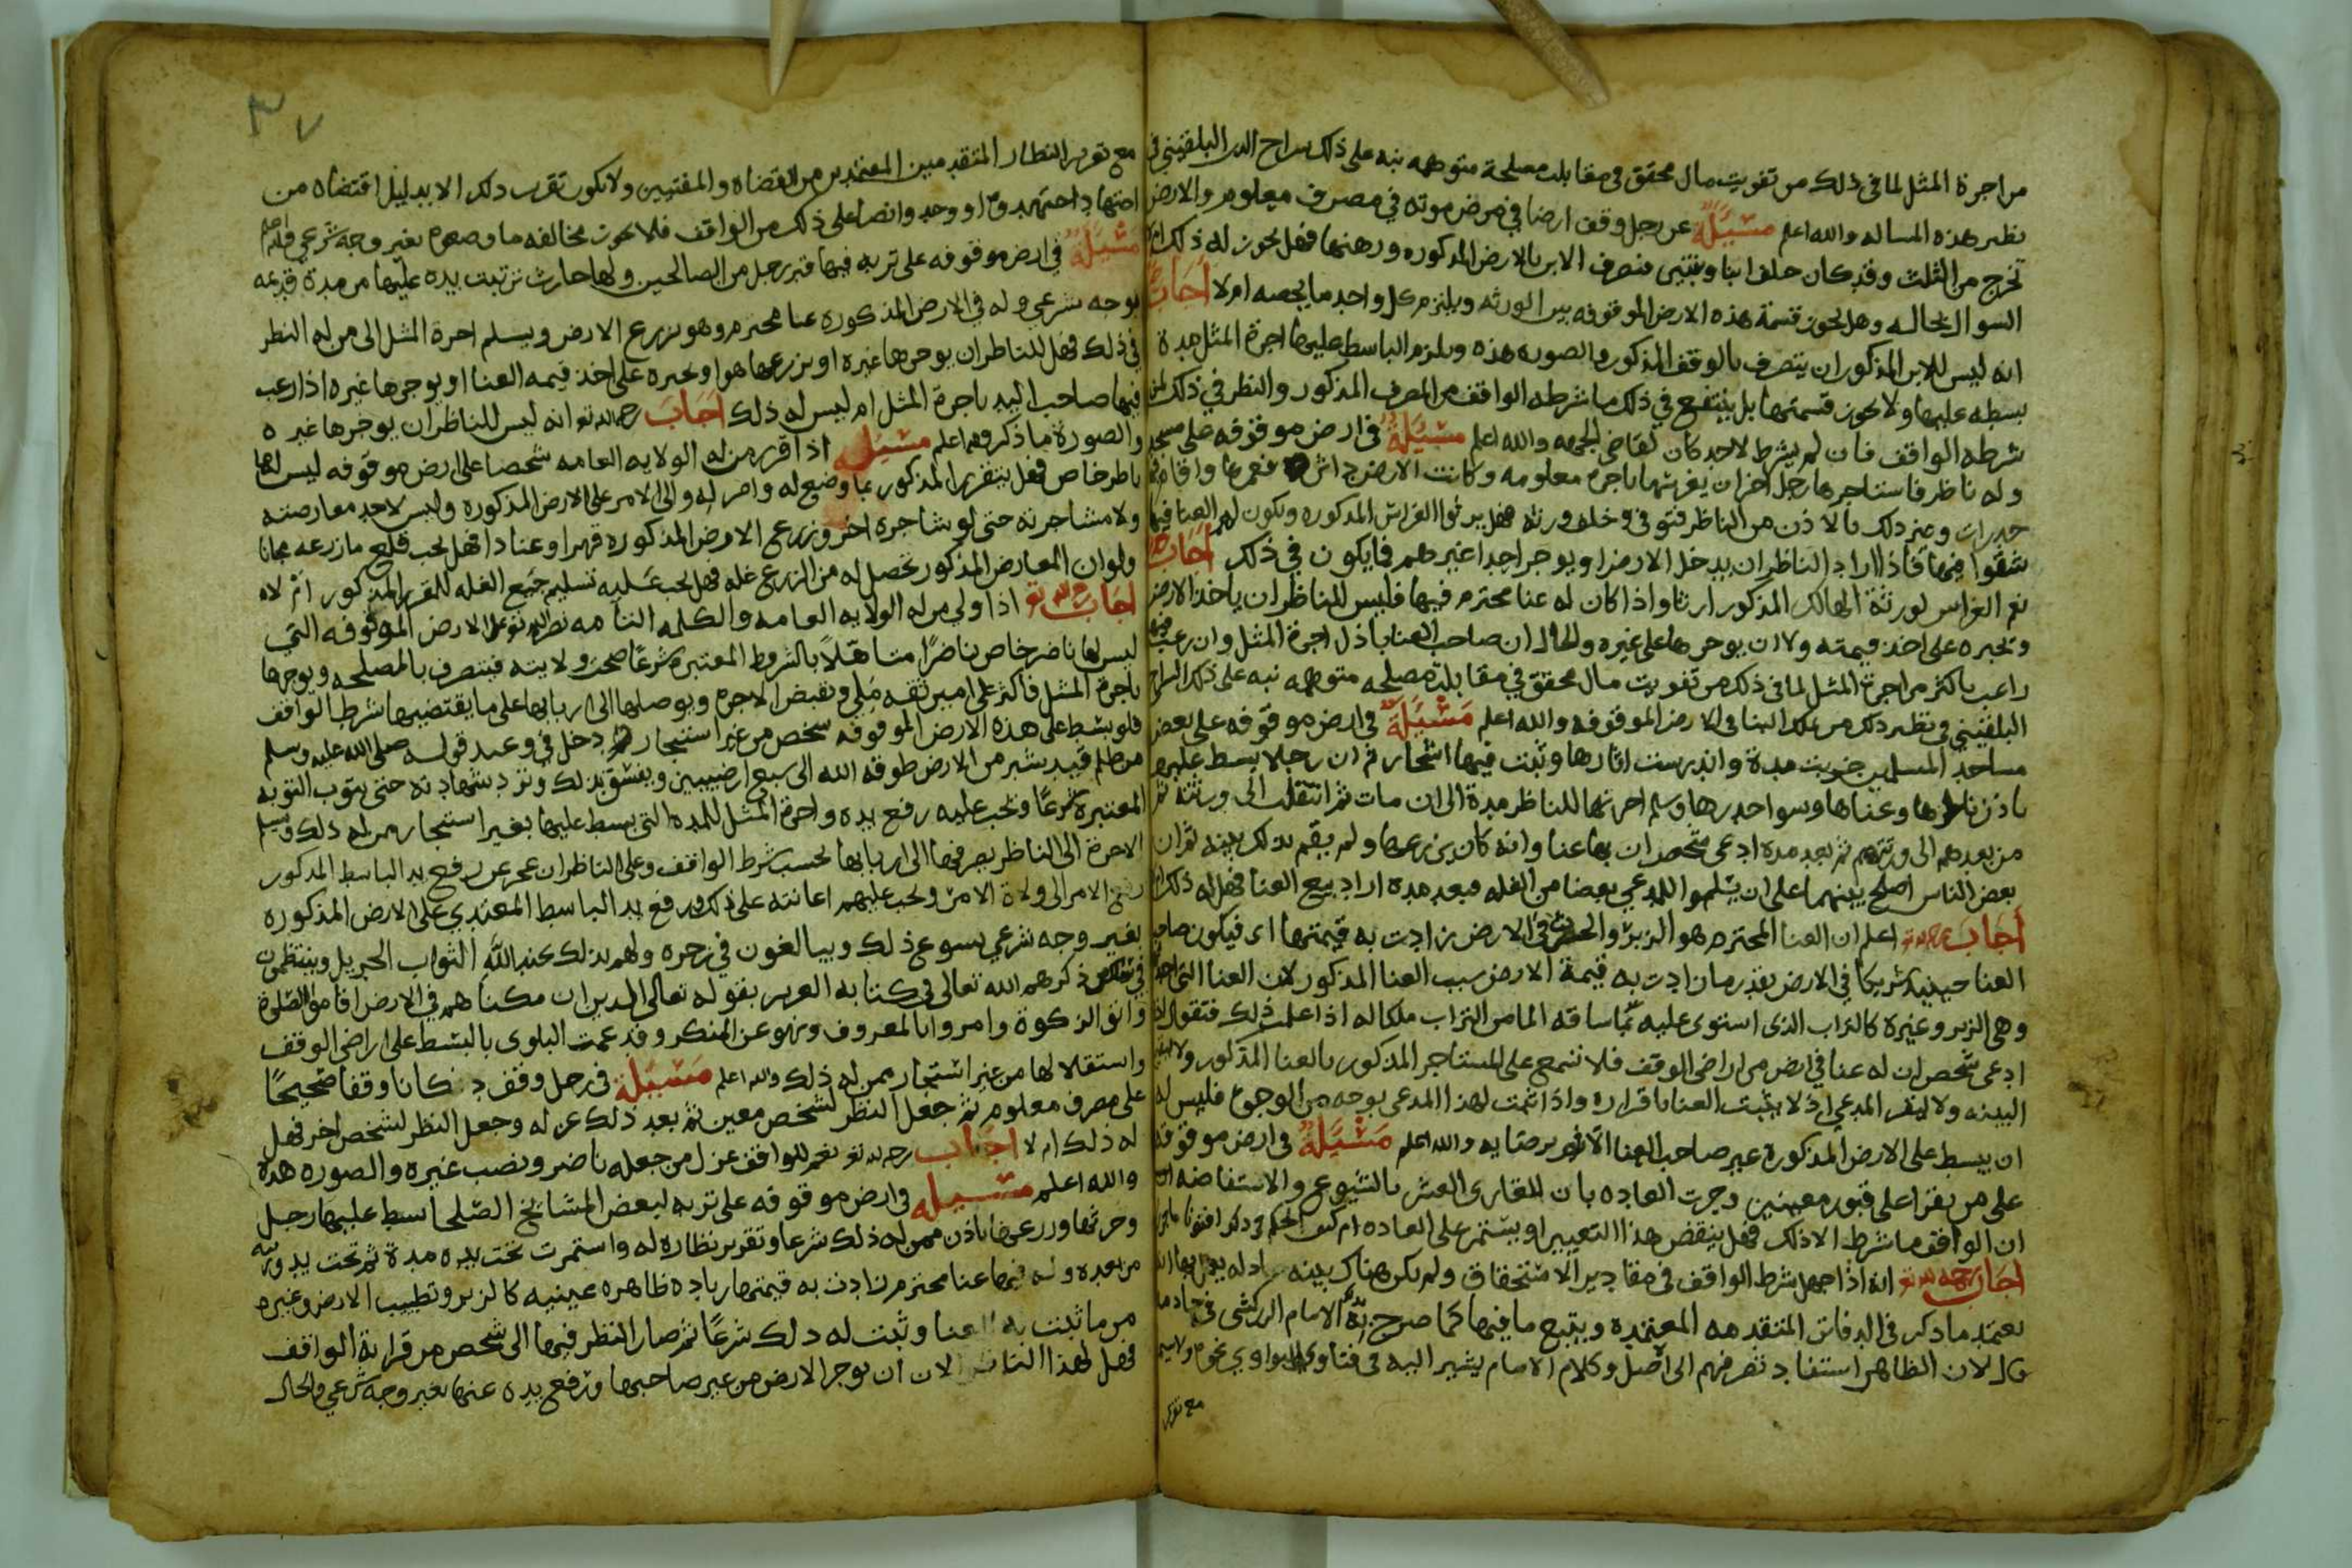 من اجرة المثل لما في ذلك من تفويت مال محقق في مقابلة مصلحة متوهمه نبه على ذلك سراج الدين البلقيني في
نظير هذه المساله والله اعلم مسئلة عن رجل وقف ارضا في مرض موته في مصرف معلوم والارض
تخرج من الثلث وقد كان خلف ابنا وبنتين فتصرف الابن بالارض المذكوره ورهنها فهل يجوز له ذلك
السوال بحاله وهل يجوز قسمة هذه الارض الموقوفه بين الورثه ويلزم كل واحد ما يخصه ام لا اجاب
انه ليس للابن المذكور ان يتصرف بالوقف المذكور والصوره هذه ويلزم الباسط عليها اجرة المثل مدة
بسطه عليها ولا يجوز قسمتها بل ينتفع في ذلك ما شرطه الواقف من المصرف المذكور والنظر في ذلك لمن
شرطه الواقف فان لم يشرط لاحد كان لقاضي الجهه والله اعلم مسئلة في ارض موقوفه على مسجد
وله ناظر فاستاجرها رجل اخر ان يغرسها باجره معلومه وكانت الارض فعمرها واقام
جدرات وغير ذلك بالاذن من الناظر فتوفي وخلف ورثه فهل يرثوا الغراس المذكوره ويكون لهم العنا فيها
شقوا فيها فاذا اراد الناظر ان يدخل الارض او يوجر احدا غيرهم فما يكون في ذلك اجاب
نعم الغراس لورثة الهالك المذكور ارثا واذا كان له عنا محترم فيها فليس للناظر ان ياخذ الارض
وتجبره على اخذ قيمته ولا ان يوجرها على غيره والحال ان صاحب العنا باذل اجرة المثل وان رغب فيها
راغب باكثر من اجرة المثل لما في ذلك من تفويت مال محقق في مقابلة مصلحه متوهمه نبه على ذلك السراج
البلقيني في نظير ذلك من علك البنا في الارض الموقوفه والله اعلم مسئلة في ارض موقوفه على بعض
مساجد المسلمين خربت مدة واندرست اثارها ونبت فيها اشجار ثم ان رجلا بسط عليها
باذن ناظرها وعناها وسوا جدرها وسلم اجرتها للناظر مدة الى ان مات ثم انتقلت الى ورثته ثم
من بعدهم الى ورثتهم ثم بعد مده ادعى شخص ان بها عنا وانه كان يزرعها ولم يقم بذلك بينه ثم ان
بعض الناس اصلح بينهما على ان يسلموا للمدعي بعضا من الغله فبعد مدة اراد بيع العنا فهل له ذلك
اجاب رحمه الله تعالى اعلم ان العنا المحترم هو الزبر والحرث في الارض زادت به قيمتها اي فيكون صاحب
العنا حينئذ شريكا في الارض بقدر ما زادت به قيمة الارض سبب العنا المذكور لان العنا
وهي الزبر وغيره كالتراب الذي استوى عليه مما ساقه الما من التراب ملكا له اذا علمت ذلك فنقول
ادعى شخص ان له عنا في ارض من اراضي الوقف فلا تسمع على المستاجر المذكور بالعنا المذكور ولا
البينه ولا ليقر المدعي اذ لا يثبت العنا باقراره واذا ثمت لهذا المدعي بوجه من الوجوع فليس له
ان يبسط على الارض المذكورة غير صاحب العنا الا برضايه والله اعلم مسئلة في ارض موقوفة
على من يقرا على قبور معينين وجرت العاده بان للقاري العشر بالشيوع والاستفاضه
ان الواقف ما شرط الا ذلك فهل ينقض هذا التعيير او يستمر على العاده ام كيف الحكم في ذلك افتونا
اجاب رحمه الله تعالى انه اذا جهل شرط الواقف في مقادير الاستحقاق ولم يكن هناك بينه
يعتمد ما ذكر في الدفاتر المتقدمه المعتمده ويتبع ما فيها كما صرح به الامام الزركشي في خادمه
قال لان الظاهر استفاد تصرفهم الى اصل وكلام الامام يشير اليه في فتاوي النواوي نحوه ولاسيما
مع تقرير
٣٧
مع تقرير النظار المتقدمين المعتمدين من القضاة والمفتيين ولا يكون تقرب ذلك الا بدليل اقتضاه من
اجتهاد اجتهد وا او وجد وانصا على ذلك من الواقف فلا يجوز مخالفه ما وضعوه بغير وجه شرعي والله اعلم
مسئلة في ارض موقوفه على تربه فيها قبر رجل من الصالحين ولها حارث ترتبت يده عليها من مدة قديمه
بوجه شرعي وله في الارض المذكوره عنا محترم وهو يزرع الارض ويسلم اجرة المثل الى من له النظر
في ذلك فهل للناظر ان يوجرها غيره او يزرعها هو او يجبره على اخذ قيمه العنا او يوجرها غيره اذا رغب
فيها صاحب اليد باجرة المثل ام ليس له ذلك اجاب رحمه الله تعالى انه ليس للناظر ان يوجرها غيره
والصورة ما ذكر والله اعلم مسئله اذا قرر من له الولايه العامه شخصا على ارض موقوفه ليس لها
ناظر خاص فهل يتقرر المذكور بما وضع له وامر له والى الامر على الارض المذكوره وليس لاحد معارضته
ولا مشاجرته حتى لو شاجره اخر وزرع الارض المذكوره قهرا وعنادا فهل يجب قلع ما زرعه مجانا
ولو ان المعارض المذكور تحصل له من الزرع غله فهل يجب عليه تسليم جميع الغله للمقرر المذكور ام لا
اجاب رحمه الله تعالى اذا ولي من له الولايه العامه والكلمه التامه نصره الله تعالى على الارض الموقوفه التي
ليس لها ناضر خاص ناضرا متاهلا بالشروط المعتبره شرعا صحت ولايته فيتصرف بالمصلحه ويوجرها
باجرة المثل فاكثر على امين ثقه ملي ويقبض الاجره ويوصلها الى اربابها على ما يقتضيه شرط الواقف
فلو بسط على هذه الارض الموقوفه شخص من غير استيجار دخل في وعيد قوله صلى الله عليه وسلم
من ظلم قيد شبر من الارض طوقه الله الى سبع ارضيين ويفسق بذلك وترد شهادته حتى يتوب التوبه
المعتبره شرعا ويجب عليه رفع يده واجرة المثل للمده التي بسط عليها بغير استيجار ممن له ذلك ويسلم
الاجرة الى الناظر يصرفها الى اربابها بحسب شرط الواقف وعلى الناظر ان عجز عن رفع يد الباسط المذكور
رفع الامر الى ولاة الامر ويجب عليهم اعانته على ذلك ورفع يد الباسط المعتدي على الارض المذكوره
بغير وجه شرعي يسوغ ذلك ويبالغون في زجره ولهم بذلك عند الله الثواب الجزيل وينتظمون
في ذكرهم الله تعالى في كتابه العزيز بقوله تعالى الذين ان مكناهم في الارض اقاموا الصلوة
واتوا الزكوة وامروا بالمعروف ونهو عن المنكر وقد عمت البلوى بالبسط على اراضي الوقف
واستقلالها من غير استيجار ممن له ذلك والله اعلم مسئلة في رجل وقف دكانا وقفا صحيحا
على مصرف معلوم ثم جعل النظر لشخص معين ثم بعد ذلك عزله وجعل النظر لشخص اخر فهل
له ذلك ام لا اجاب رحمه الله تعالى نعم للواقف عزل من جعله ناضر ونصب غيره والصوره هذه
والله اعلم مسئله في ارض موقوفه على تربه لبعض المشايخ الصلحا بسط عليها رجل
وحرثها وزرعها باذن ممن له ذلك شرعا وتقرير نظاره له واستمرت تحت يده مدة ثم تحت يد ورثته
من بعده وله فيها عنا محترم زادت به قيمتها زياده ظاهره عينيه كالزبر وتطييب الارض وغيره
من ما ثبت به العنا وثبت له ذلك شرعا ثم صار النظر فيها الى شخص من قرابة الواقف
فهل لهذا الناظر الان ان يوجر الارض من غير صاحبها ويرفع يده عنها بغير وجه شرعي والحال